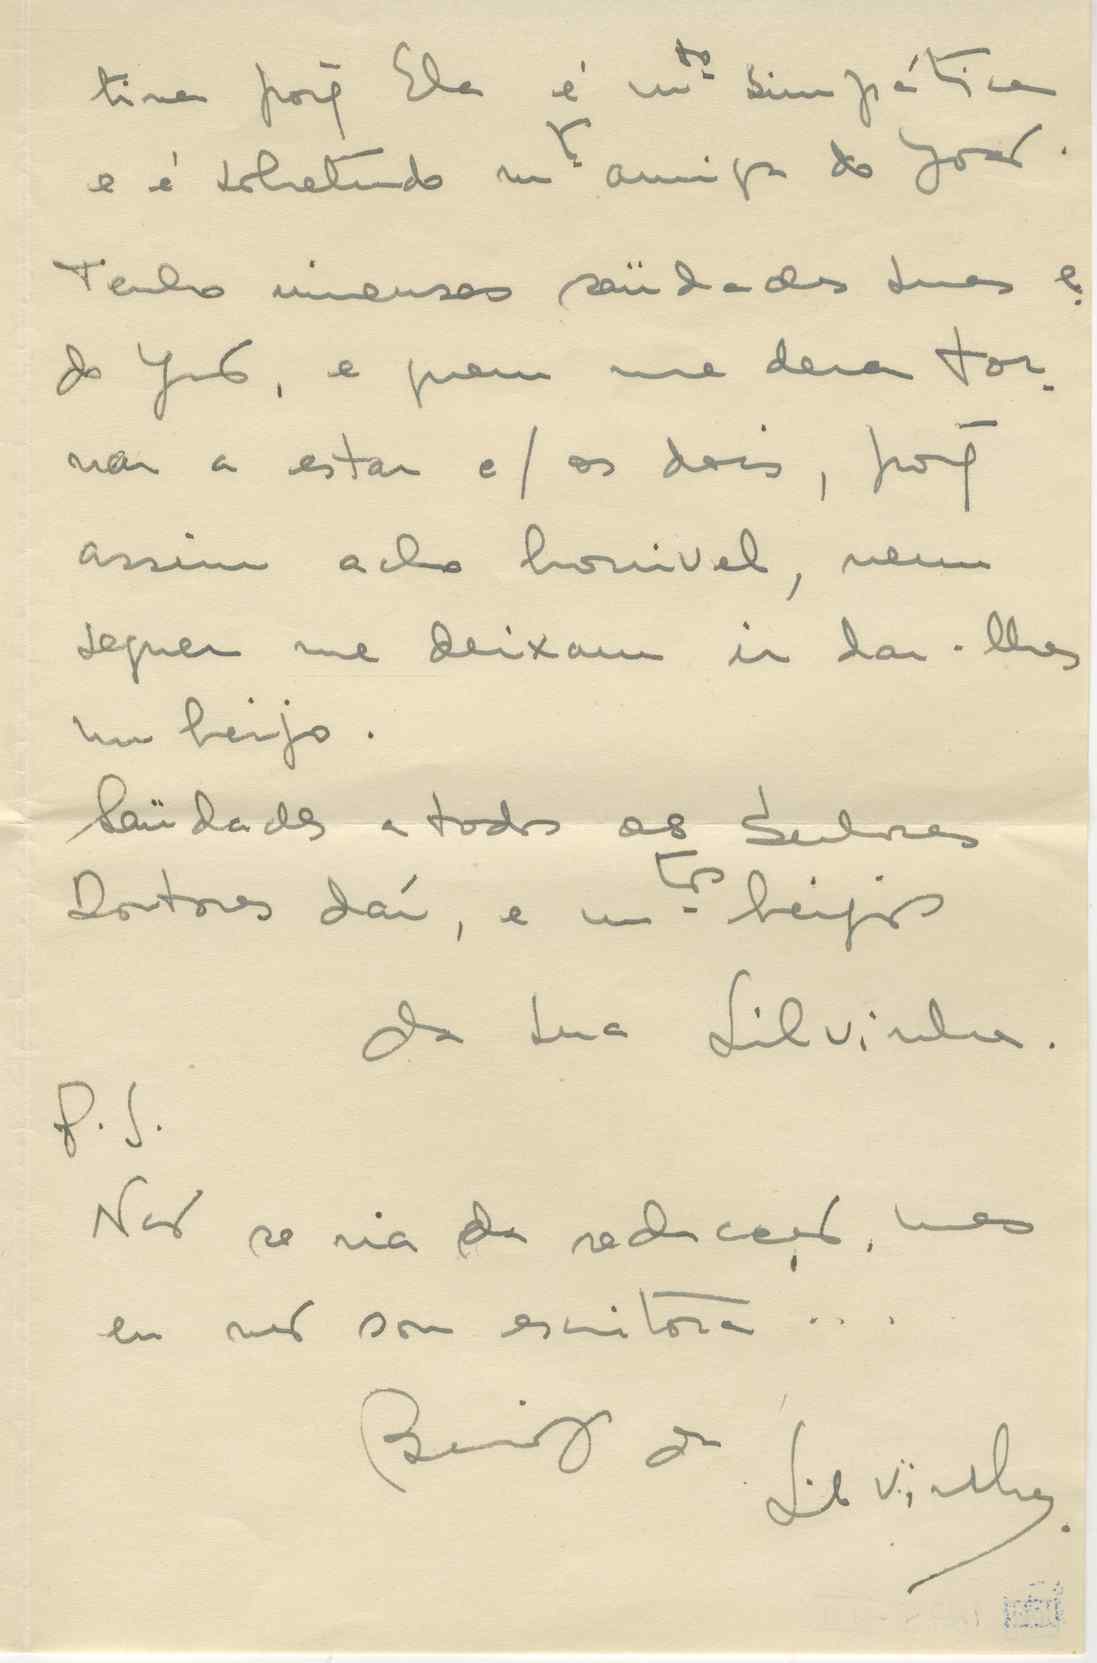 tina porq̃ Ela é mto simpática
e é sobretudo mto amiga do João.
Tenho imensas saüdades suas e
do João, e quem me dera tor-
nar a estar c/ os dois, porq̃
assim acho horrivel, nem
sequer me deixam ir dar-lhes
um beijo.
Saüdades a todos os Senhores
Doutores daí, e mtos beijos
da sua Silvinha.
P.S.
Não se ria da redacção, mas
eu não sou escritora...
Beijos da
Silvinha.